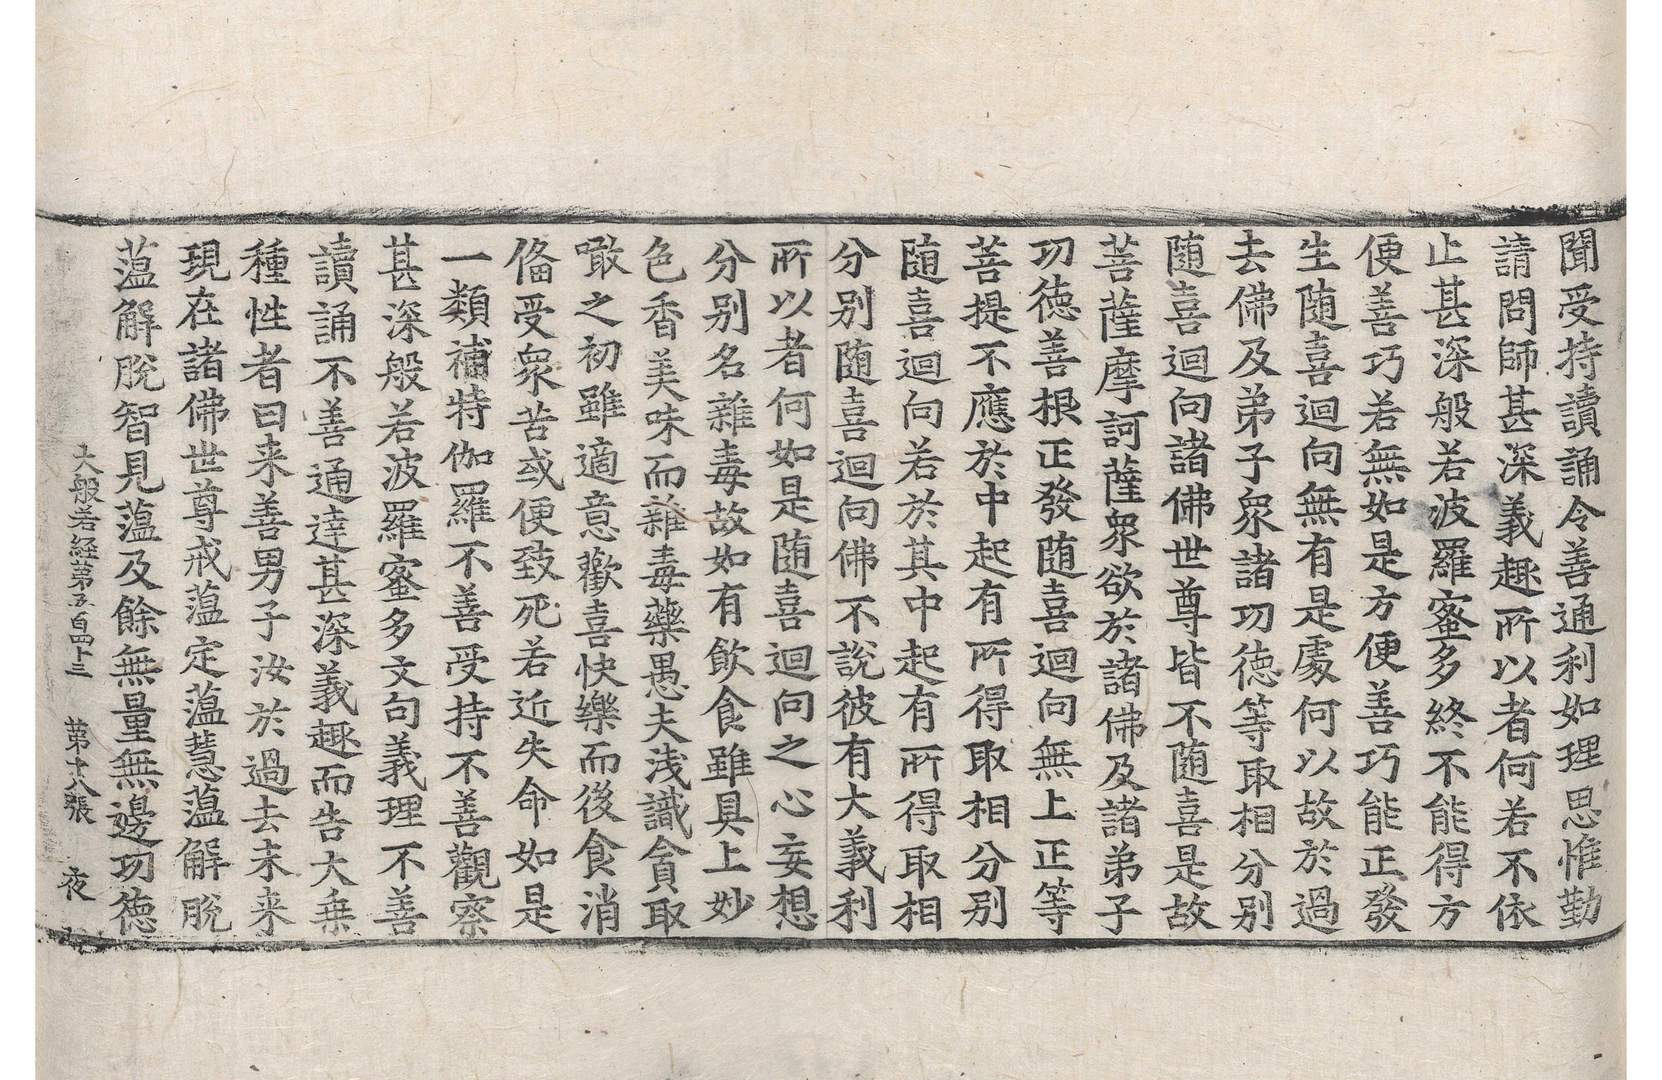 聞受持讀誦令善通利如理思惟勤
請問師甚深義趣所以者何若不依
止甚深般若波羅蜜多終不能得方
便善巧若無如是方便善巧能正發
生随喜迴向無有是處何以故於過
去佛及弟子衆諸功德等取相分別
随喜迴向諸佛世尊皆不随喜是故
菩薩摩訶薩衆欲於諸佛及諸弟子
功德善根正發随喜迴向無上正等
菩提不應於中起有所得取相分別
随喜迴向若於其中起有所得取相
分別随喜迴向佛不說彼有大義利
所以者何如是随喜迴向之心妄想
分別名雜毒故如有飲食雖具上妙
色香美味而雜毒藥愚夫淺識貪取
噉之初雖適意歡喜快樂而後食消
俻受衆苦或便致死若近失命如是
一類補特伽羅不善受持不善觀察
甚深般若波羅蜜多文句義理不善
讀誦不善通達甚深義趣而告大乗
種性者曰来善男子汝於過去未来
現在諸佛世尊戒蕰定蕰慧蕰解脫
蕰解脫智見蕰及餘無量無邊功德
大般若経第五百四十三 第十八張 夜